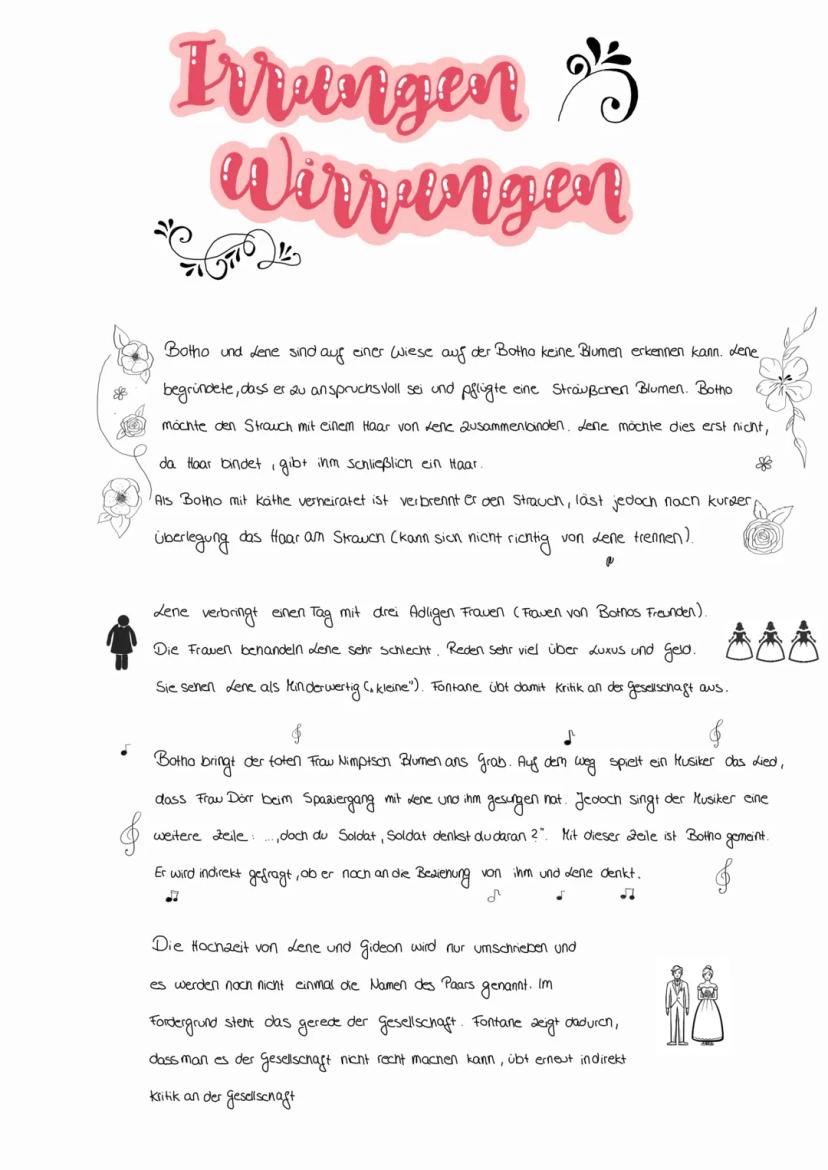 Irrungen
Wirrungen
Botho und Lene sind auf einer Wiese auf der Botho keine Blumen erkennen kann. Lene
begründete, dass er zu anspruchsvoll sei und pflügte eine Sträußchen Blumen. Botho
möchte den Strauch mit einem Haar von Lene zusammenbinden. Lene möchte dies erst nicht,
da Haar bindet, gibt ihm schließlich ein Haar.
Als Botho mit Käthe verheiratet ist verbrennt er den Strauch, läst jedoch nach kurzer
überlegung das Haar am Strauch (kann sich nicht richtig von Lene trennen).
Lene verbringt einen Tag mit drei Adligen Frauen (Frauen von Bothos Freunden).
Die Frauen behandeln Lene sehr schlecht. Reden sehr viel über Luxus und Geld.
Sie sehen Lene als Minderwertig („kleine"). Fontane übt damit Kritik an der Gesellschaft aus.
Botho bringt der toten Frau Nimptsch Blumen ans Grab. Auf dem Weg spielt ein Musiker das Lied,
dass Frau Dörr beim Spaziergang mit Lene und ihm gesungen hat. Jedoch singt der Musiker eine
weitere Zeile: ...,doch du Soldat, Soldat denkst du daran?". Mit dieser Zeile ist Botho gemeint.
Er wird indirekt gefragt, ob er noch an die Beziehung von ihm und Lene denkt.
Die Hochzeit von Lene und Gideon wird nur umschrieben und
es werden noch nicht einmal die Namen des Paars genannt. Im
Fordergrund steht das gerede der Gesellschaft. Fontane zeigt dadurch,
dass man es der Gesellschaft nicht recht machen kann, übt erneut indirekt
Kritik an der Gesellschaft